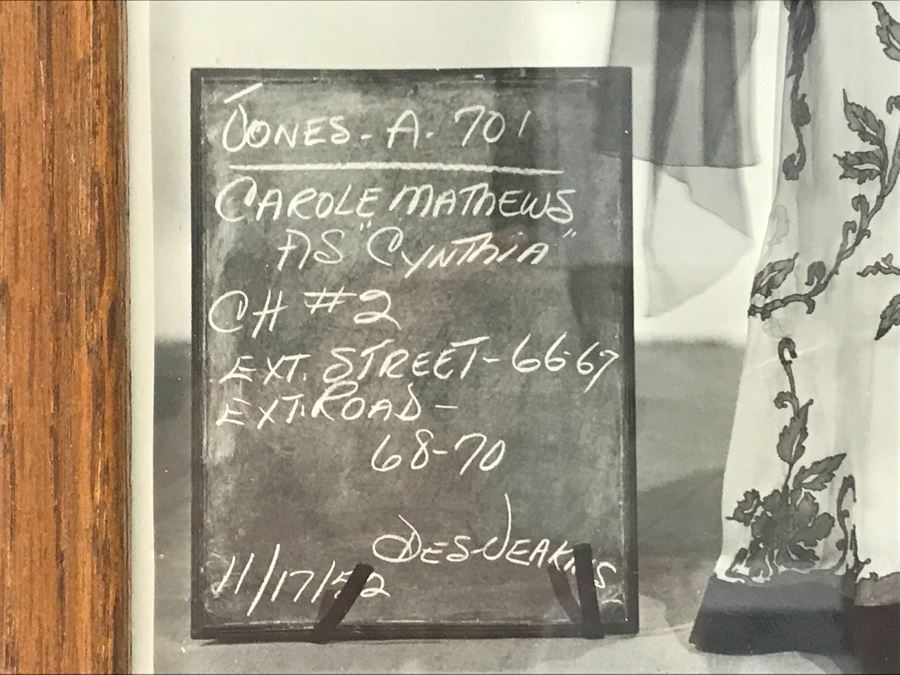 JONES - A - 701
CAROLE MATHEWS
AS "CYNTHIA"
CH #2
EXT. STREET - 66-67
EXT. ROAD -
68-70
DES-JEAKINS
11/17/52